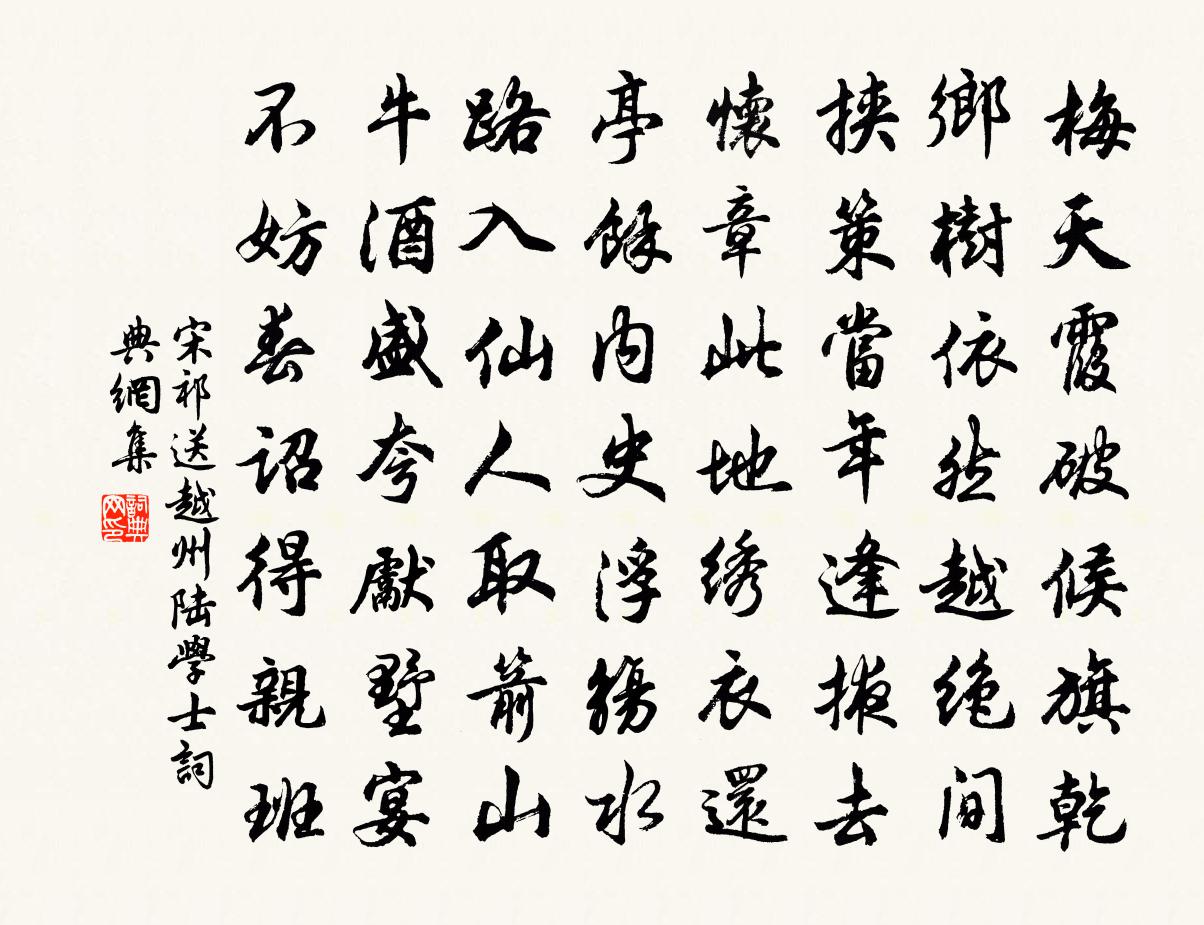 梅天霞破候旗乾
鄉樹依然越絶間
挾策當年逢掖去
懷章此地綉衣還
亭餘内史浮觴水
路入仙人取箭山
牛酒盛夸獻墅宴
不妨春詔得親班
宋祁送越州陸學士詞
典網集
詞典網印